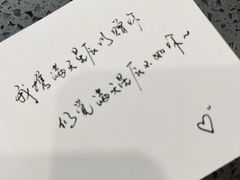 我携满天星辰以赠你
仍觉满天星辰不如你~